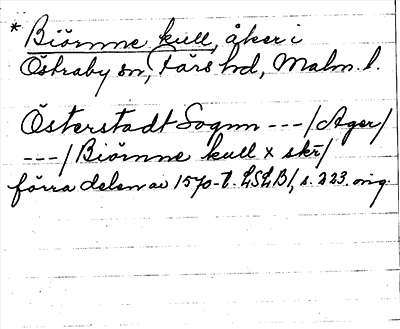 * Biörnne kull, åker i
Östraby sn, Färs hd, Malm. l.
Österstadt Sognn --- / Ager /
--- / Biörnne kull x skr /
förra delen av 1570-t. LSLB 1, s. 223. orig.